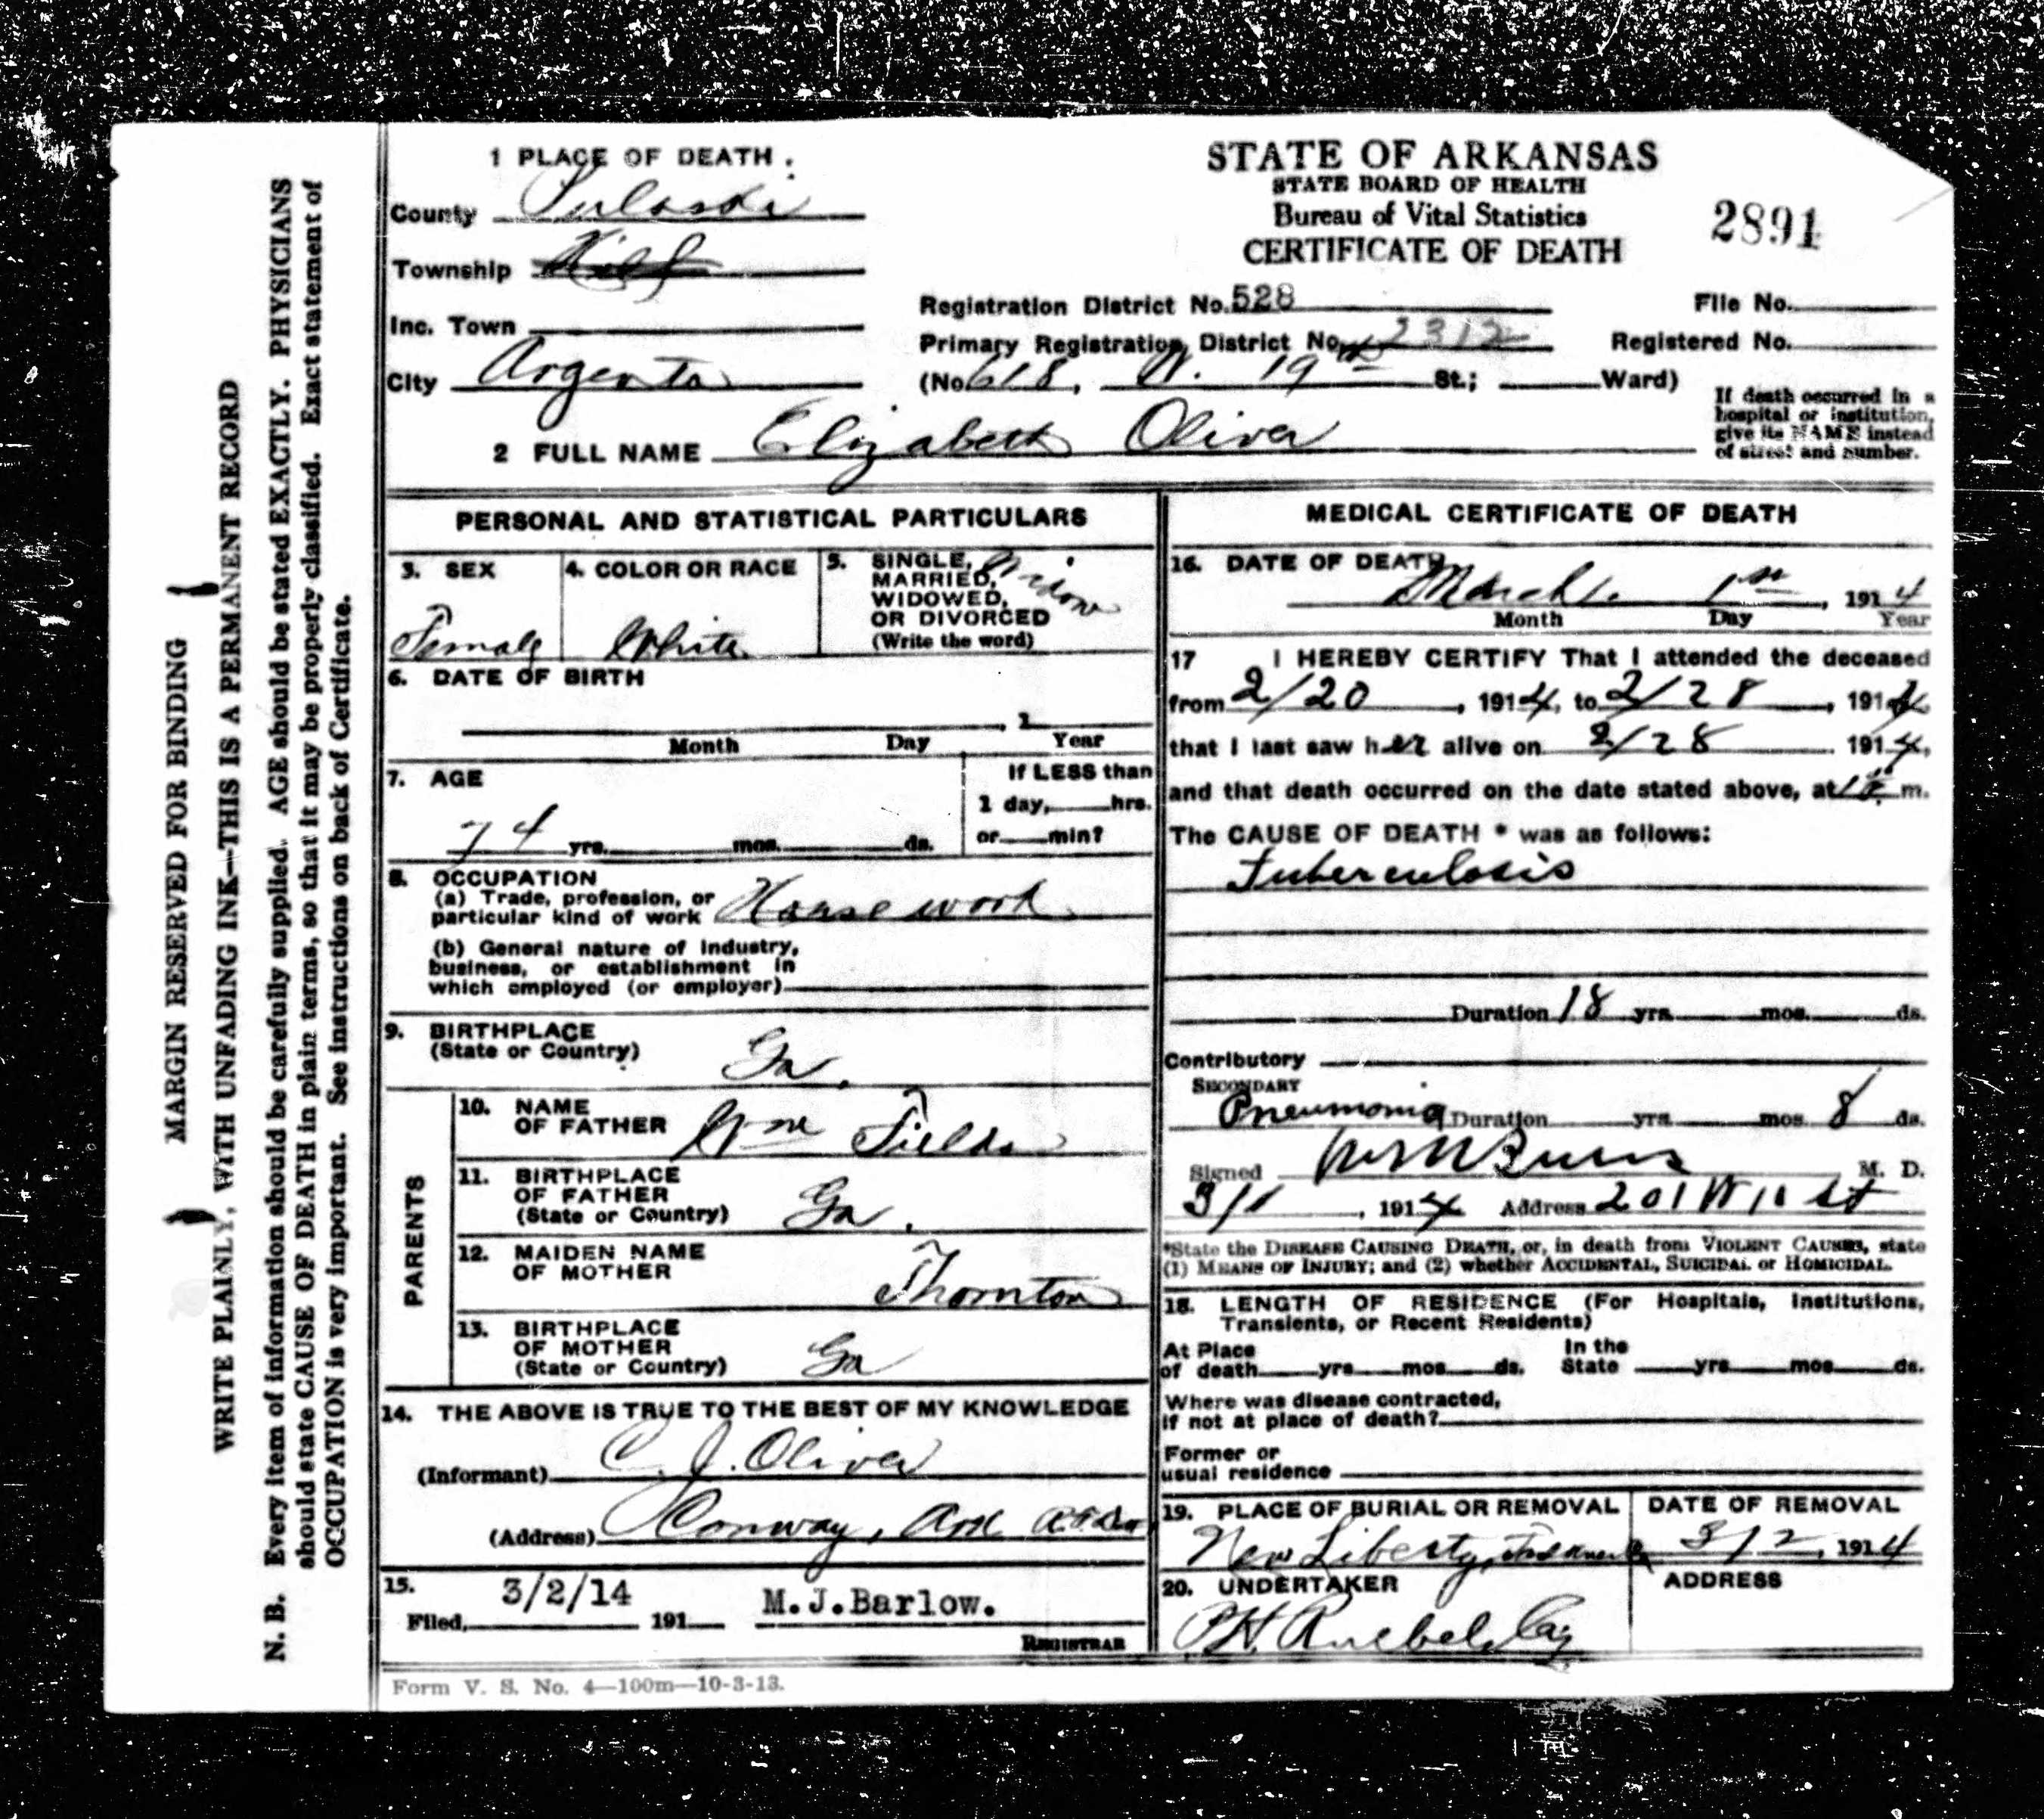 MARGIN RESERVED FOR BINDING
WRITE PLAINLY, WITH UNFADING INK—THIS IS A PERMANENT RECORD
N. B. Every item of information should be carefully supplied. AGE should be stated EXACTLY. PHYSICIANS
should state CAUSE OF DEATH in plain terms, so that it may be properly classified. Exact statement of
OCCUPATION is very important. See instructions on back of Certificate.
1 PLACE OF DEATH.
County Pulaski
Township
Inc. Town
City Argenta
STATE OF ARKANSAS
STATE BOARD OF HEALTH
Bureau of Vital Statistics
CERTIFICATE OF DEATH
2891
Registration District No. 528
File No.
Primary Registration District No. 2312
Registered No.
(No. 618, W. 19th St.; Ward)
If death occurred in a
hospital or institution,
give its NAME instead
of street and number.
2 FULL NAME Elizabeth Oliver
PERSONAL AND STATISTICAL PARTICULARS
3. SEX
Female
4. COLOR OR RACE
White
5. SINGLE,
MARRIED,
WIDOWED,
OR DIVORCED
(Write the word)
Widow
6. DATE OF BIRTH
, 1
Month Day Year
7. AGE
74 yrs. mos. ds.
If LESS than
1 day, hrs.
or min?
8. OCCUPATION
(a) Trade, profession, or
particular kind of work Housework
(b) General nature of industry,
business, or establishment in
which employed (or employer)
9. BIRTHPLACE
(State or Country)
Ga.
PARENTS
10. NAME
OF FATHER Wm Fields
11. BIRTHPLACE
OF FATHER
(State or Country) Ga.
12. MAIDEN NAME
OF MOTHER
Thornton
13. BIRTHPLACE
OF MOTHER
(State or Country) Ga
14. THE ABOVE IS TRUE TO THE BEST OF MY KNOWLEDGE
(Informant) C. J. Oliver
(Address) Conway, Ark
15.
Filed, 3/2/14 191 M.J.Barlow.
REGISTRAR
Form V. S. No. 4—100m—10-3-13.
MEDICAL CERTIFICATE OF DEATH
16. DATE OF DEATH
March 1st, 1914
Month Day Year
17 I HEREBY CERTIFY That I attended the deceased
from 2/20, 1914, to 2/28, 1914,
that I last saw her alive on 2/28 1914,
and that death occurred on the date stated above, at m.
The CAUSE OF DEATH * was as follows:
Tuberculosis
Duration 18 yrs. mos. ds.
Contributory
SECONDARY
Pneumonia Duration yrs. mos. 8 ds.
Signed M. D.
3/1, 1914 Address 201 W 11 St
*State the DISEASE CAUSING DEATH, or, in death from VIOLENT CAUSES, state
(1) MEANS OF INJURY; and (2) whether ACCIDENTAL, SUICIDAL or HOMICIDAL.
18. LENGTH OF RESIDENCE (For Hospitals, Institutions,
Transients, or Recent Residents)
At Place
of death yrs. mos. ds.
In the
State yrs. mos. ds.
Where was disease contracted,
if not at place of death?
Former or
usual residence
19. PLACE OF BURIAL OR REMOVAL
New Liberty,
DATE OF REMOVAL
3/2, 1914
20. UNDERTAKER
P.H. Ruebel
ADDRESS